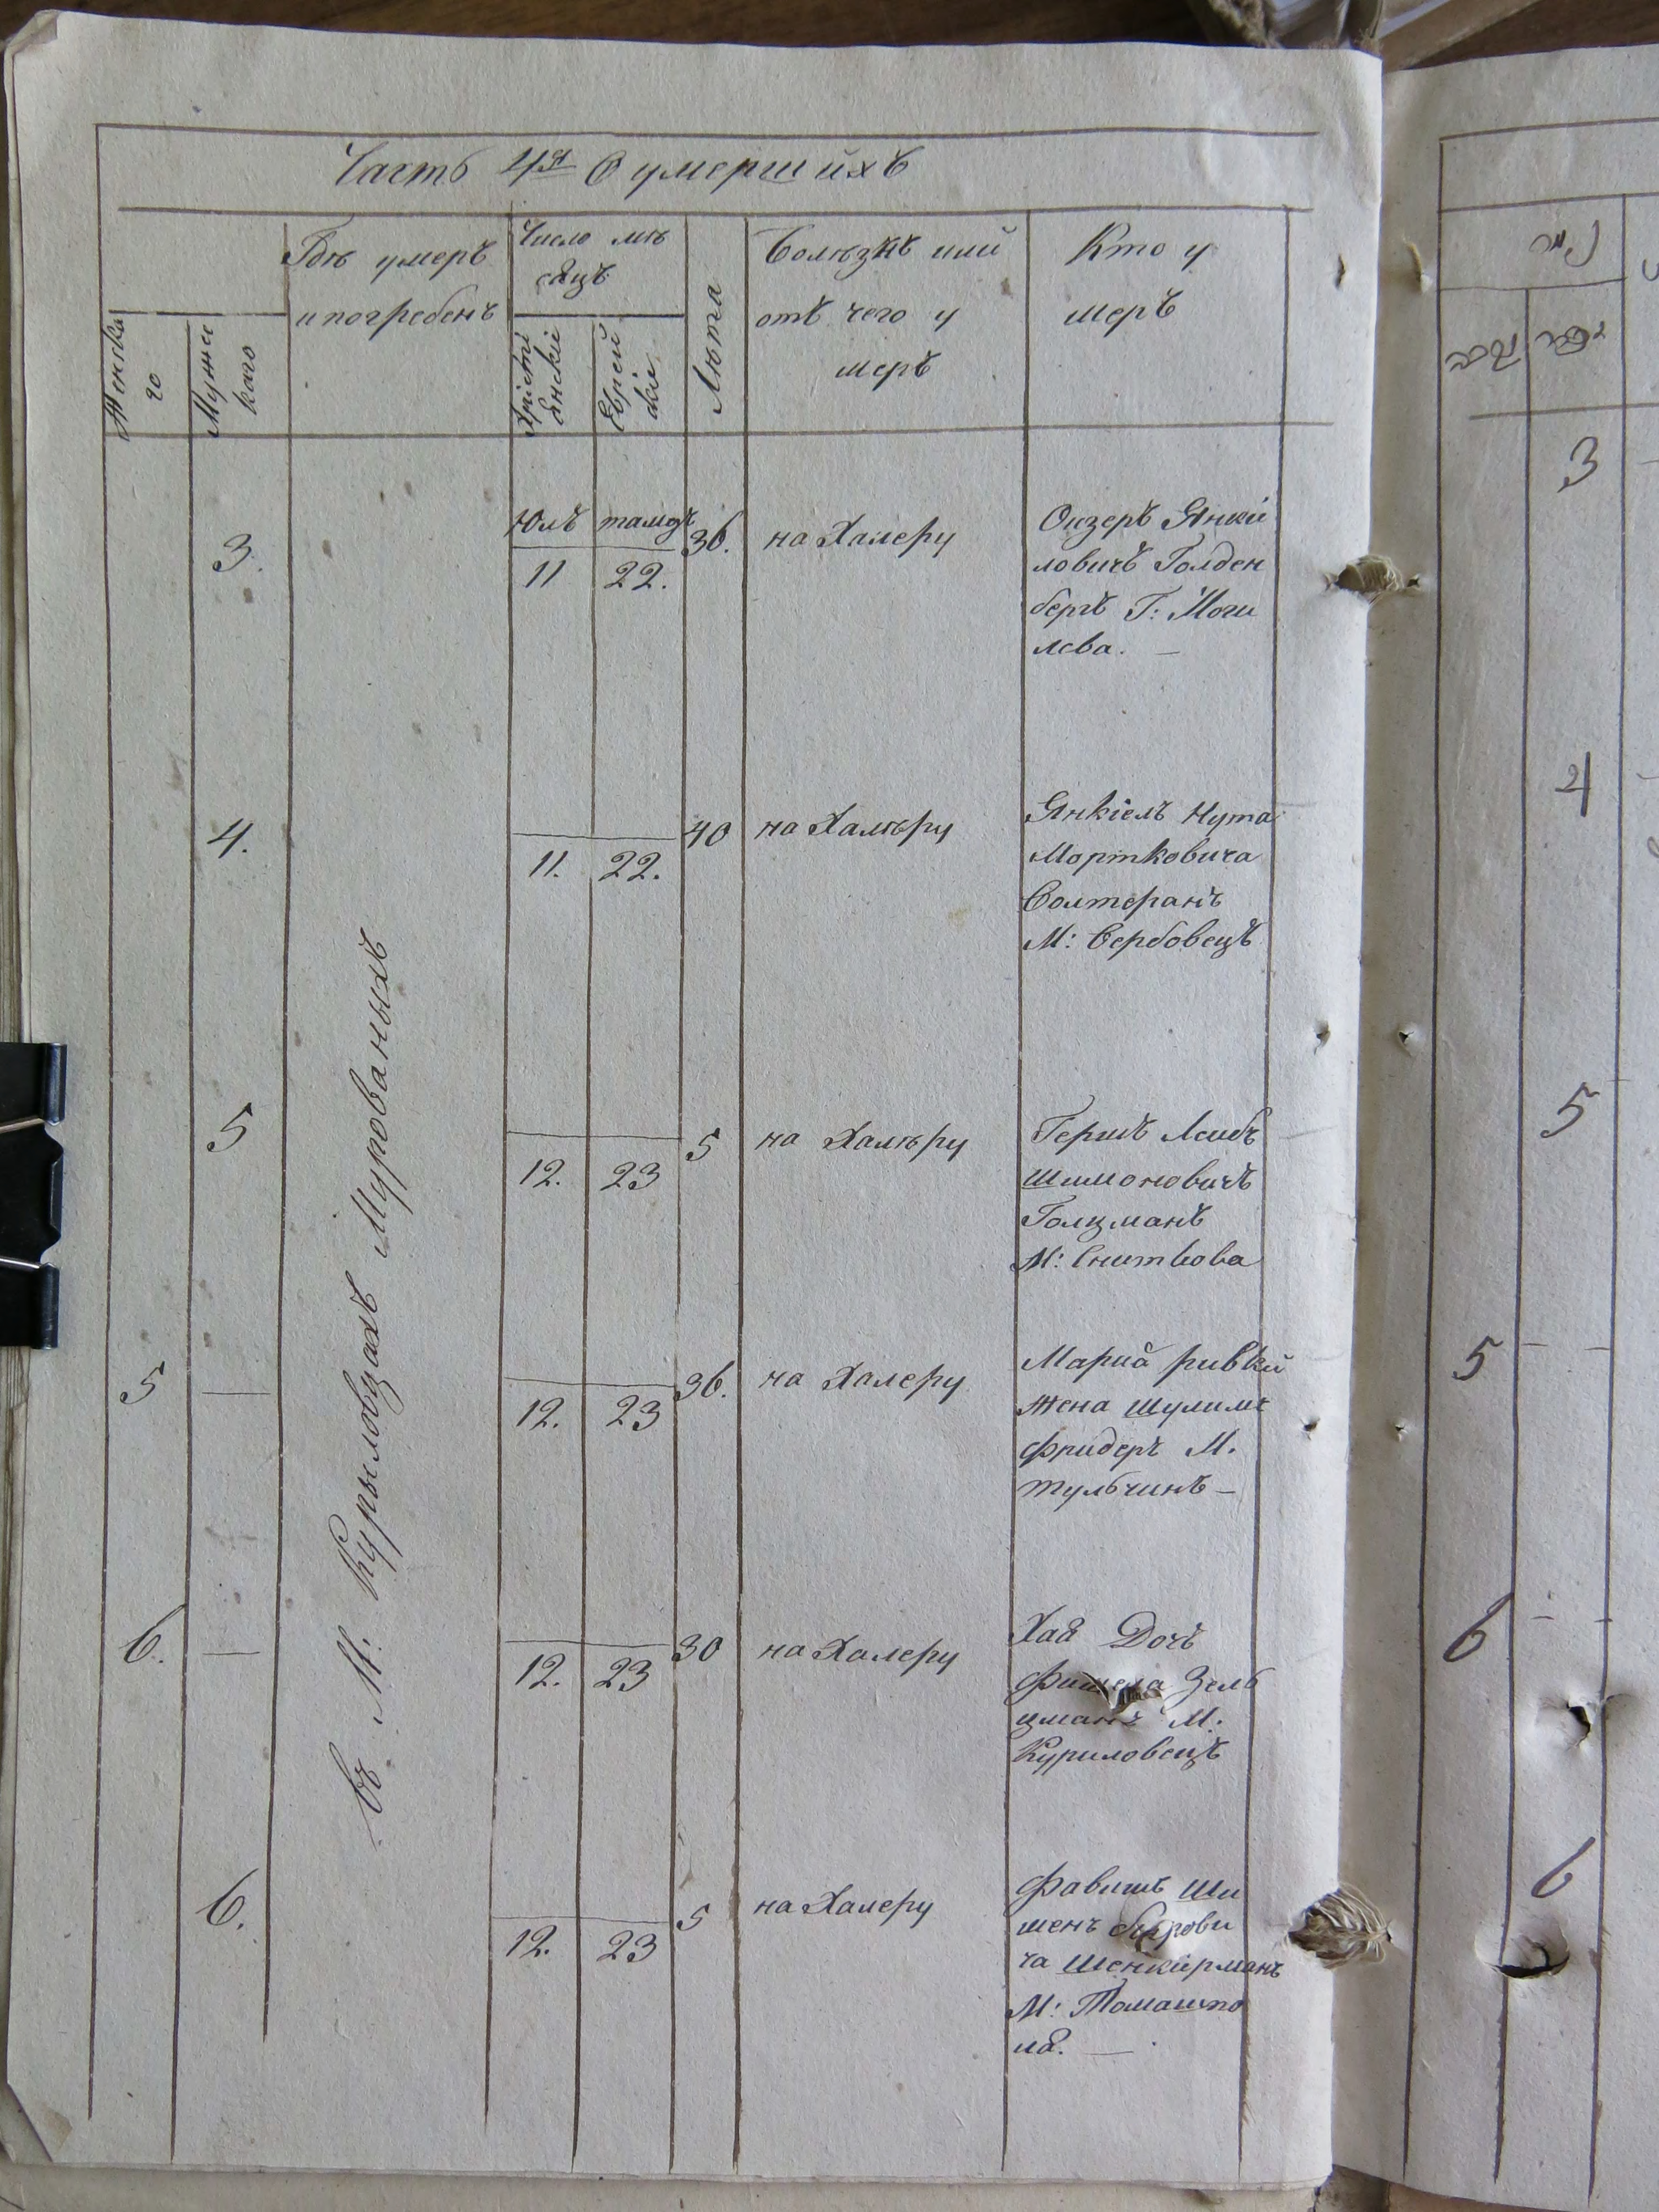 Часть 4я О умершихъ
Женска
го
Мужес
каго
Гдѣ умеръ
и погребенъ
Число мѣ
сяцъ
Хрісті
янскіе
Еврей
скіе
Лѣта
Болѣзнь или
отъ чего у
меръ
Кто у
меръ
въ М. Курыловцахъ Мурованыхъ
3.
Юль тамозъ
11 22.
36.
на Халеру
Оизеръ Янкі
ловичъ Голден
бергъ Г: Моги
лева. —
4.
11. 22.
40
на Халѣру
Янкіель Нута
Мортковича
Солтеранъ
М: Вербовецъ
5
12. 23
5
на Халѣру
Гершъ Леибъ
Шимоновичъ
Голцманъ
М: Снитkова
5 —
12. 23
36.
на Халеру
Мария ривкй
жена шулима
Фридеръ М.
тульчинъ —
6. —
12. 23
30
на Халеру
Хая Дочъ
Фишела Зель
цманъ М:
Куриловецъ
6.
12. 23
5
на Халеру
Фавишъ Ши
менъ
ча Шенкирманъ
М: Томашпо
ля. —
3
4
5
5 —
6 —
6